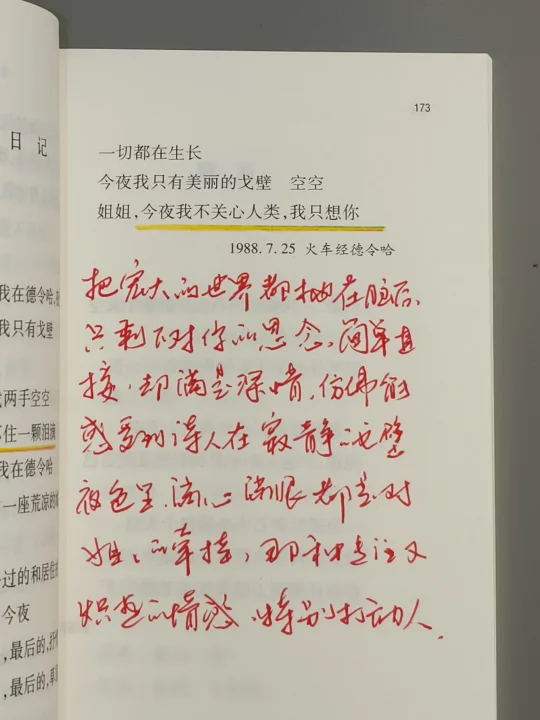 日 记
我在德令哈
我只有戈壁
两手空空
住一颗泪滴
我在德令哈
一座荒凉的
过的和居住
今夜
,最后的,抒
,最后的,草
173
一切都在生长
今夜我只有美丽的戈壁 空空
姐姐,今夜我不关心人类,我只想你
1988.7.25 火车经德令哈
把宏大的世界都抛在脑后、
只剩下对你的思念、简单直
接,却满是深情,仿佛能
感受到诗人在寂静戈壁
夜色里、满心满眼都是对
姐姐的牵挂,那种专注又
炽热的情感、特别打动人.